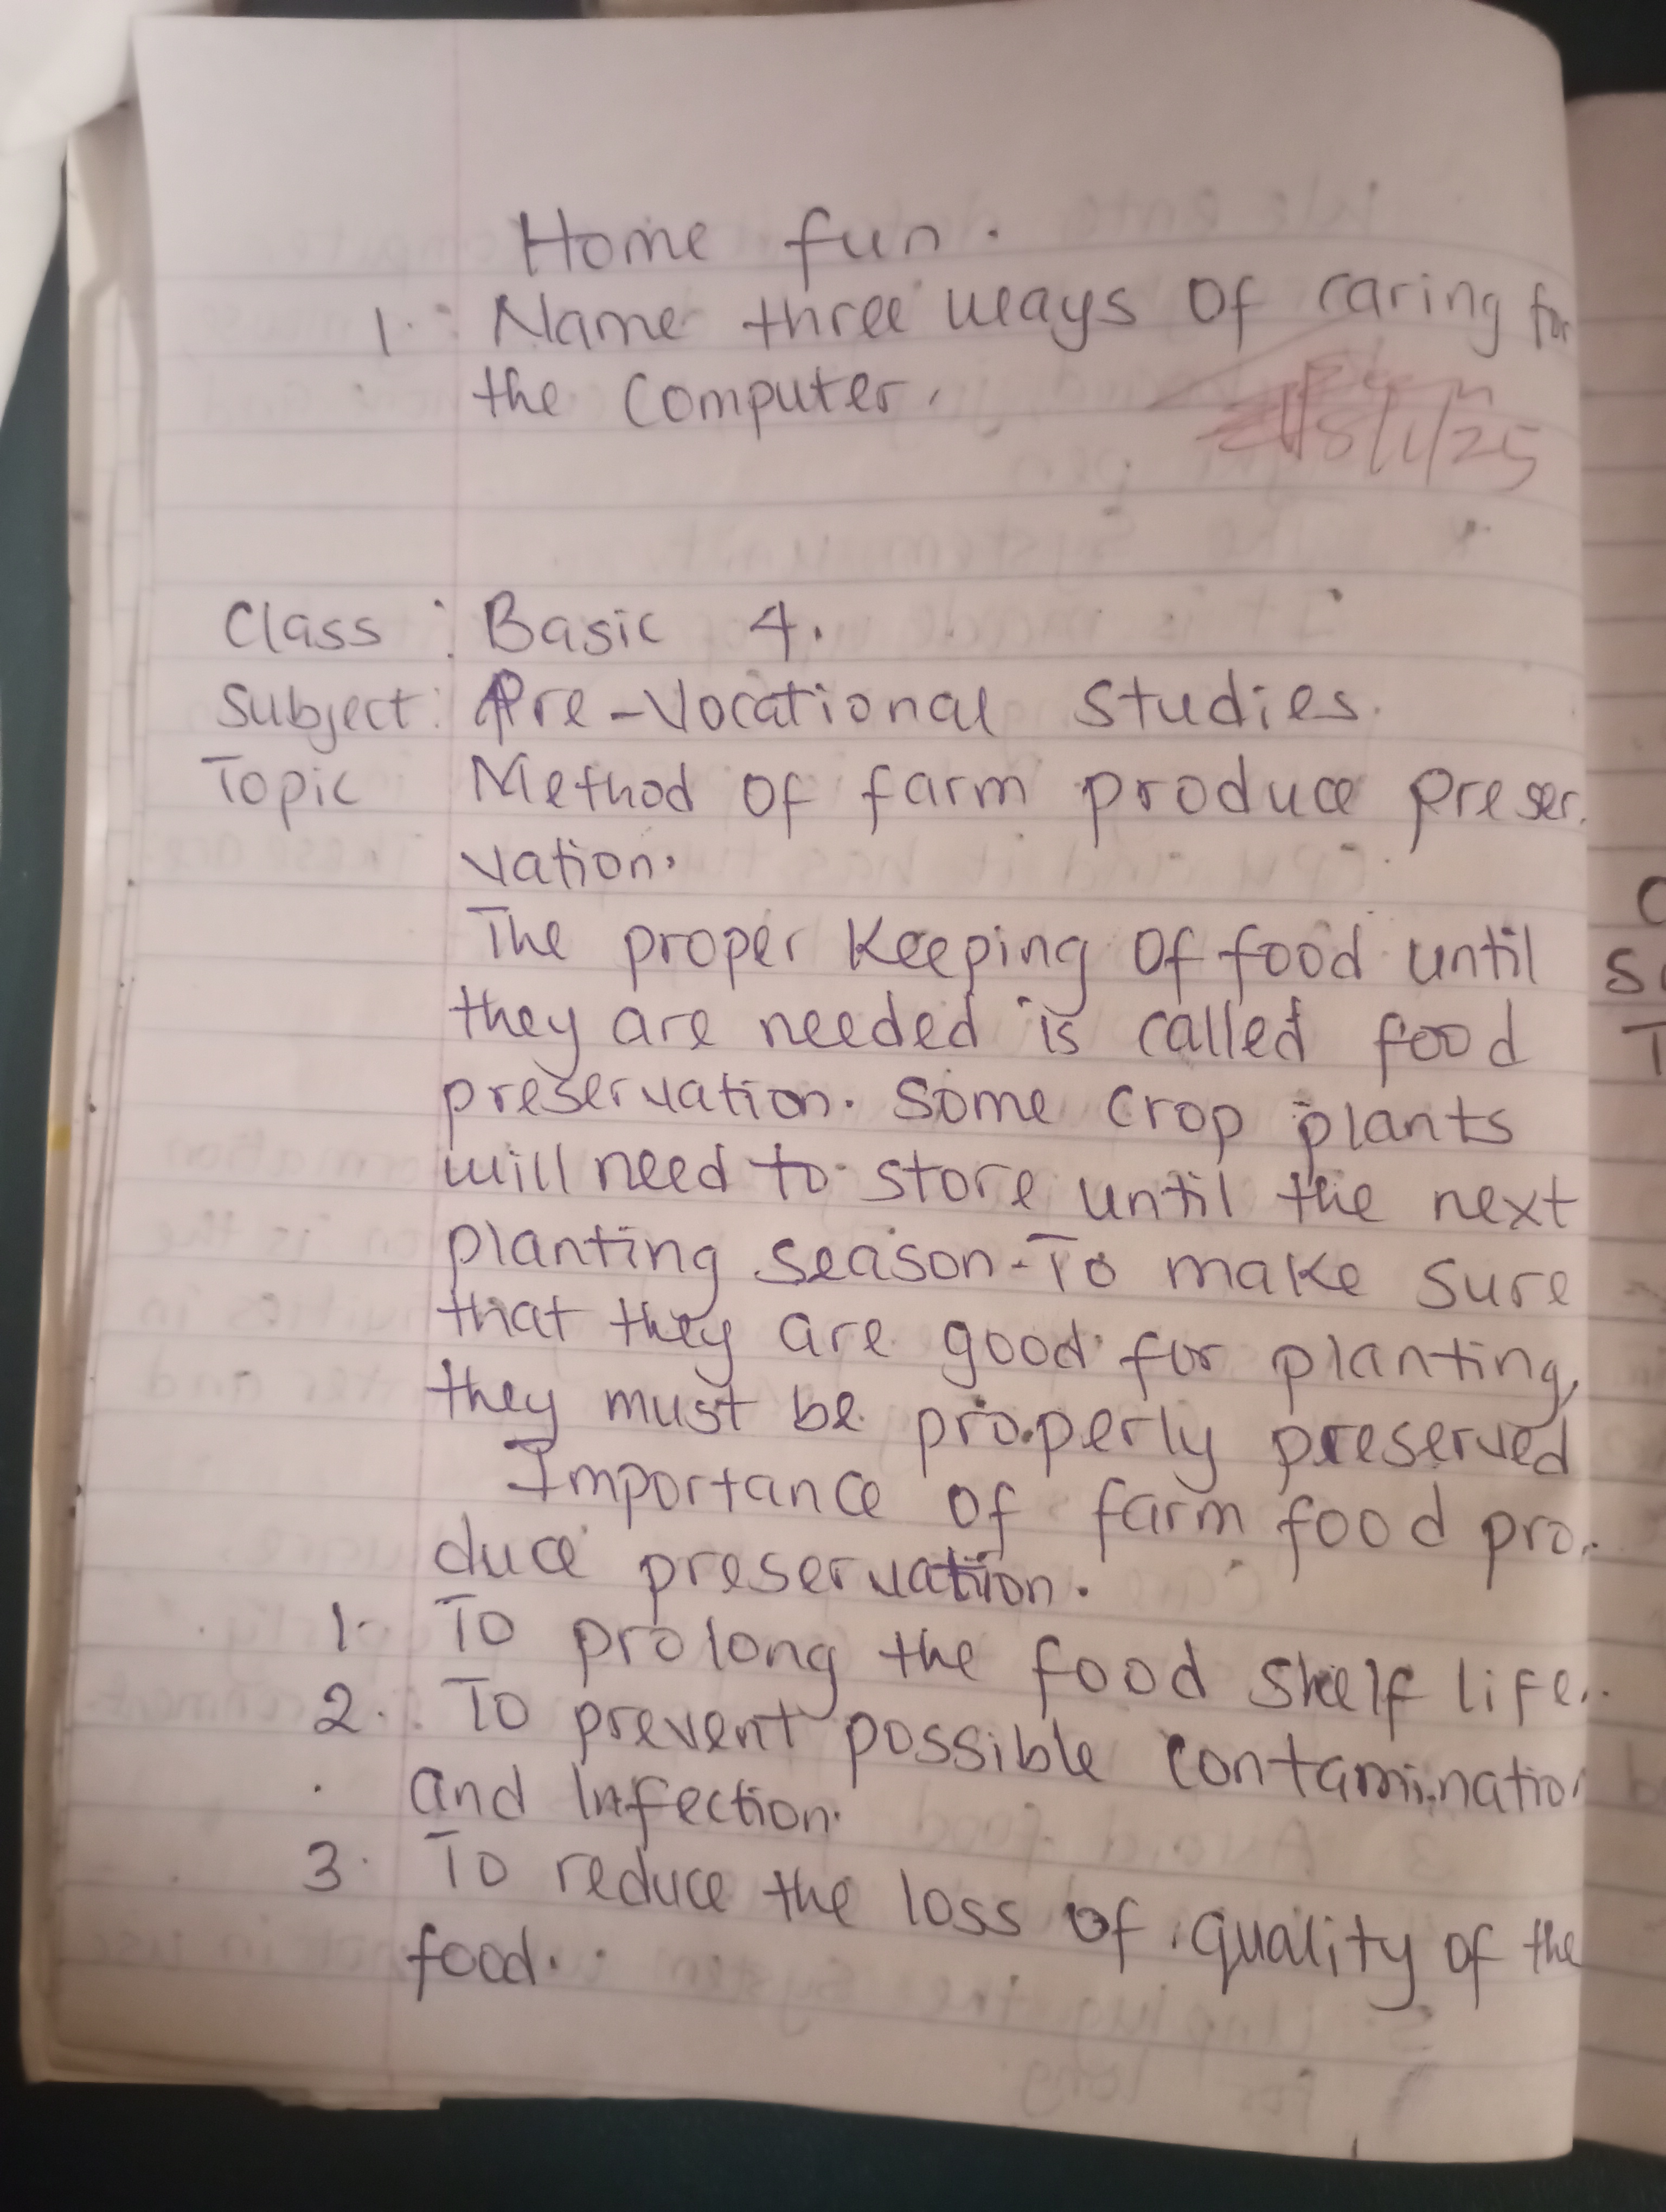 Home fun.
1. Name three ways of caring for
the computer.
8/1/25
Class : Basic 4.
Subject: Pre-Vocational studies.
Topic Method of farm produce preser.
vation.
The proper keeping of food until
they are needed is called food
preservation. Some crop plants
will need to store until the next
planting season. To make sure
that they are good for planting,
they must be properly preserved
Importance of farm food pro.
duce preservation.
1. To prolong the food shelf life.
2. To prevent possible contamination
and Infection.
3. To reduce the loss of quality of the
food.